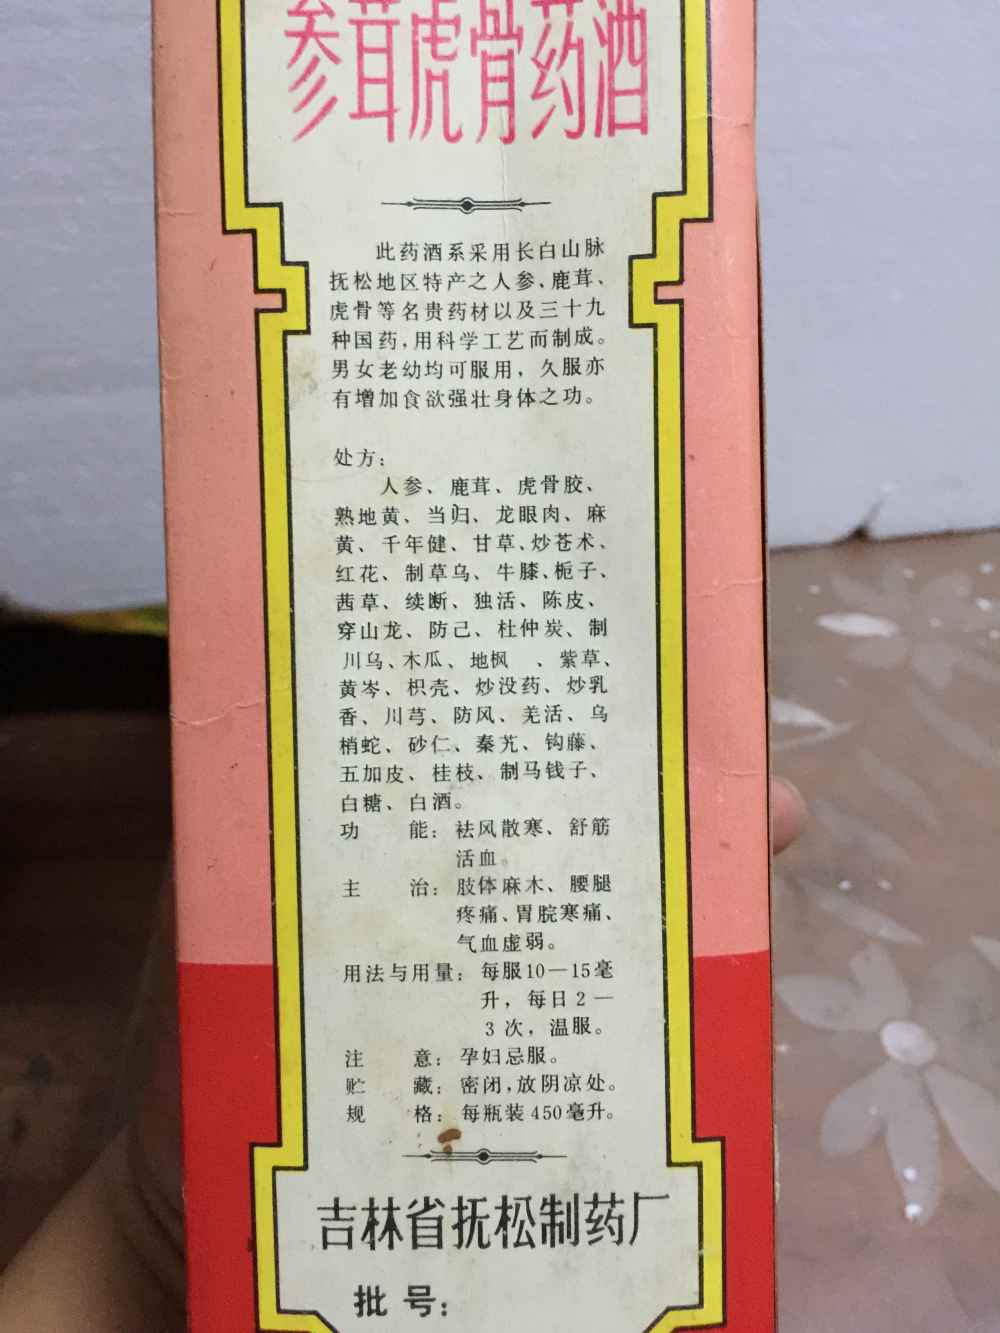 参茸虎骨药酒
此药酒系采用长白山脉
抚松地区特产之人参、鹿茸、
虎骨等名贵药材以及三十九
种国药,用科学工艺而制成。
男女老幼均可服用，久服亦
有增加食欲强壮身体之功。
处方：
人参、鹿茸、虎骨胶、
熟地黄、当归、龙眼肉、麻
黄、千年健、甘草、炒苍术、
红花、制草乌、牛膝、栀子、
茜草、续断、独活、陈皮、
穿山龙、防己、杜仲炭、制
川乌、木瓜、地枫 、紫草、
黄岑、枳壳、炒没药、炒乳
香、川芎、防风、羌活、乌
梢蛇、砂仁、秦艽、钩藤、
五加皮、桂枝、制马钱子、
白糖、白酒。
功 能：祛风散寒、舒筋
活血。
主 治：肢体麻木、腰腿
疼痛、胃脘寒痛、
气血虚弱。
用法与用量：每服10—15毫
升，每日2—
3次，温服。
注 意：孕妇忌服。
贮 藏：密闭,放阴凉处。
规 格：每瓶装450毫升。
吉林省抚松制药厂
批号：